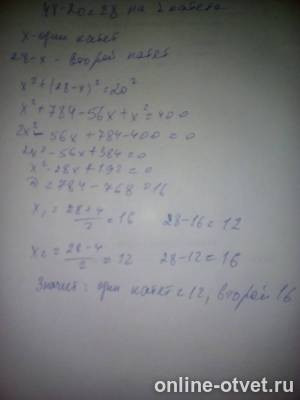 48-20=28 на 2 катета
x-один катет
28-x - второй катет
x²+(28-x)²=20²
x²+784-56x+x²=400
2x²-56x+784-400=0
2x²-56x+384=0
x²-28x+192=0
D=784-768=16
x₁=(28+4)/2=16    28-16=12
x₂=(28-4)/2=12    28-12=16
Значит: один катет=12, второй 16
online-otvet.ru